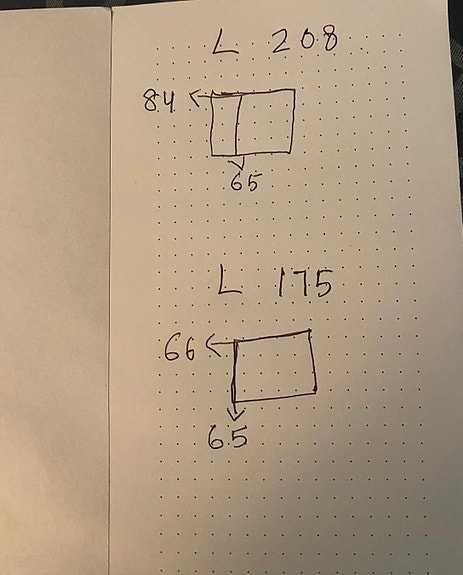 L 208
84
65
L 175
66
65